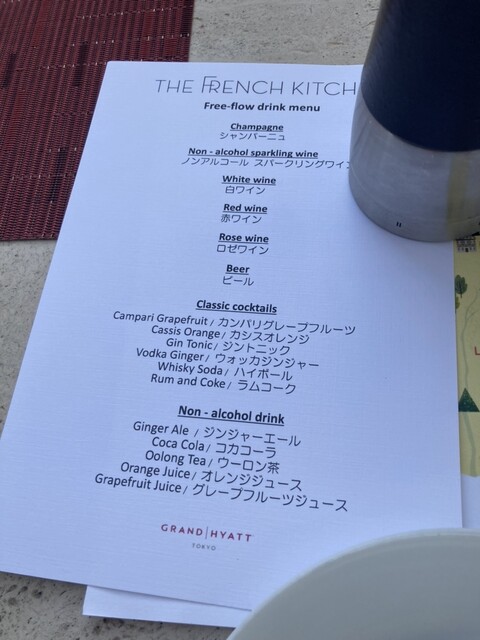 THE FRENCH KITCH
Free-flow drink menu
Champagne
シャンパーニュ
Non - alcohol sparkling wine
ノンアルコール スパークリングワイン
White wine
白ワイン
Red wine
赤ワイン
Rose wine
ロゼワイン
Beer
ビール
Classic cocktails
Campari Grapefruit / カンパリグレープフルーツ
Cassis Orange / カシスオレンジ
Gin Tonic / ジントニック
Vodka Ginger / ウォッカジンジャー
Whisky Soda / ハイボール
Rum and Coke / ラムコーク
Non - alcohol drink
Ginger Ale / ジンジャーエール
Coca Cola / コカコーラ
Oolong Tea / ウーロン茶
Orange Juice / オレンジジュース
Grapefruit Juice / グレープフルーツジュース
GRAND | HYATT
TOKYO